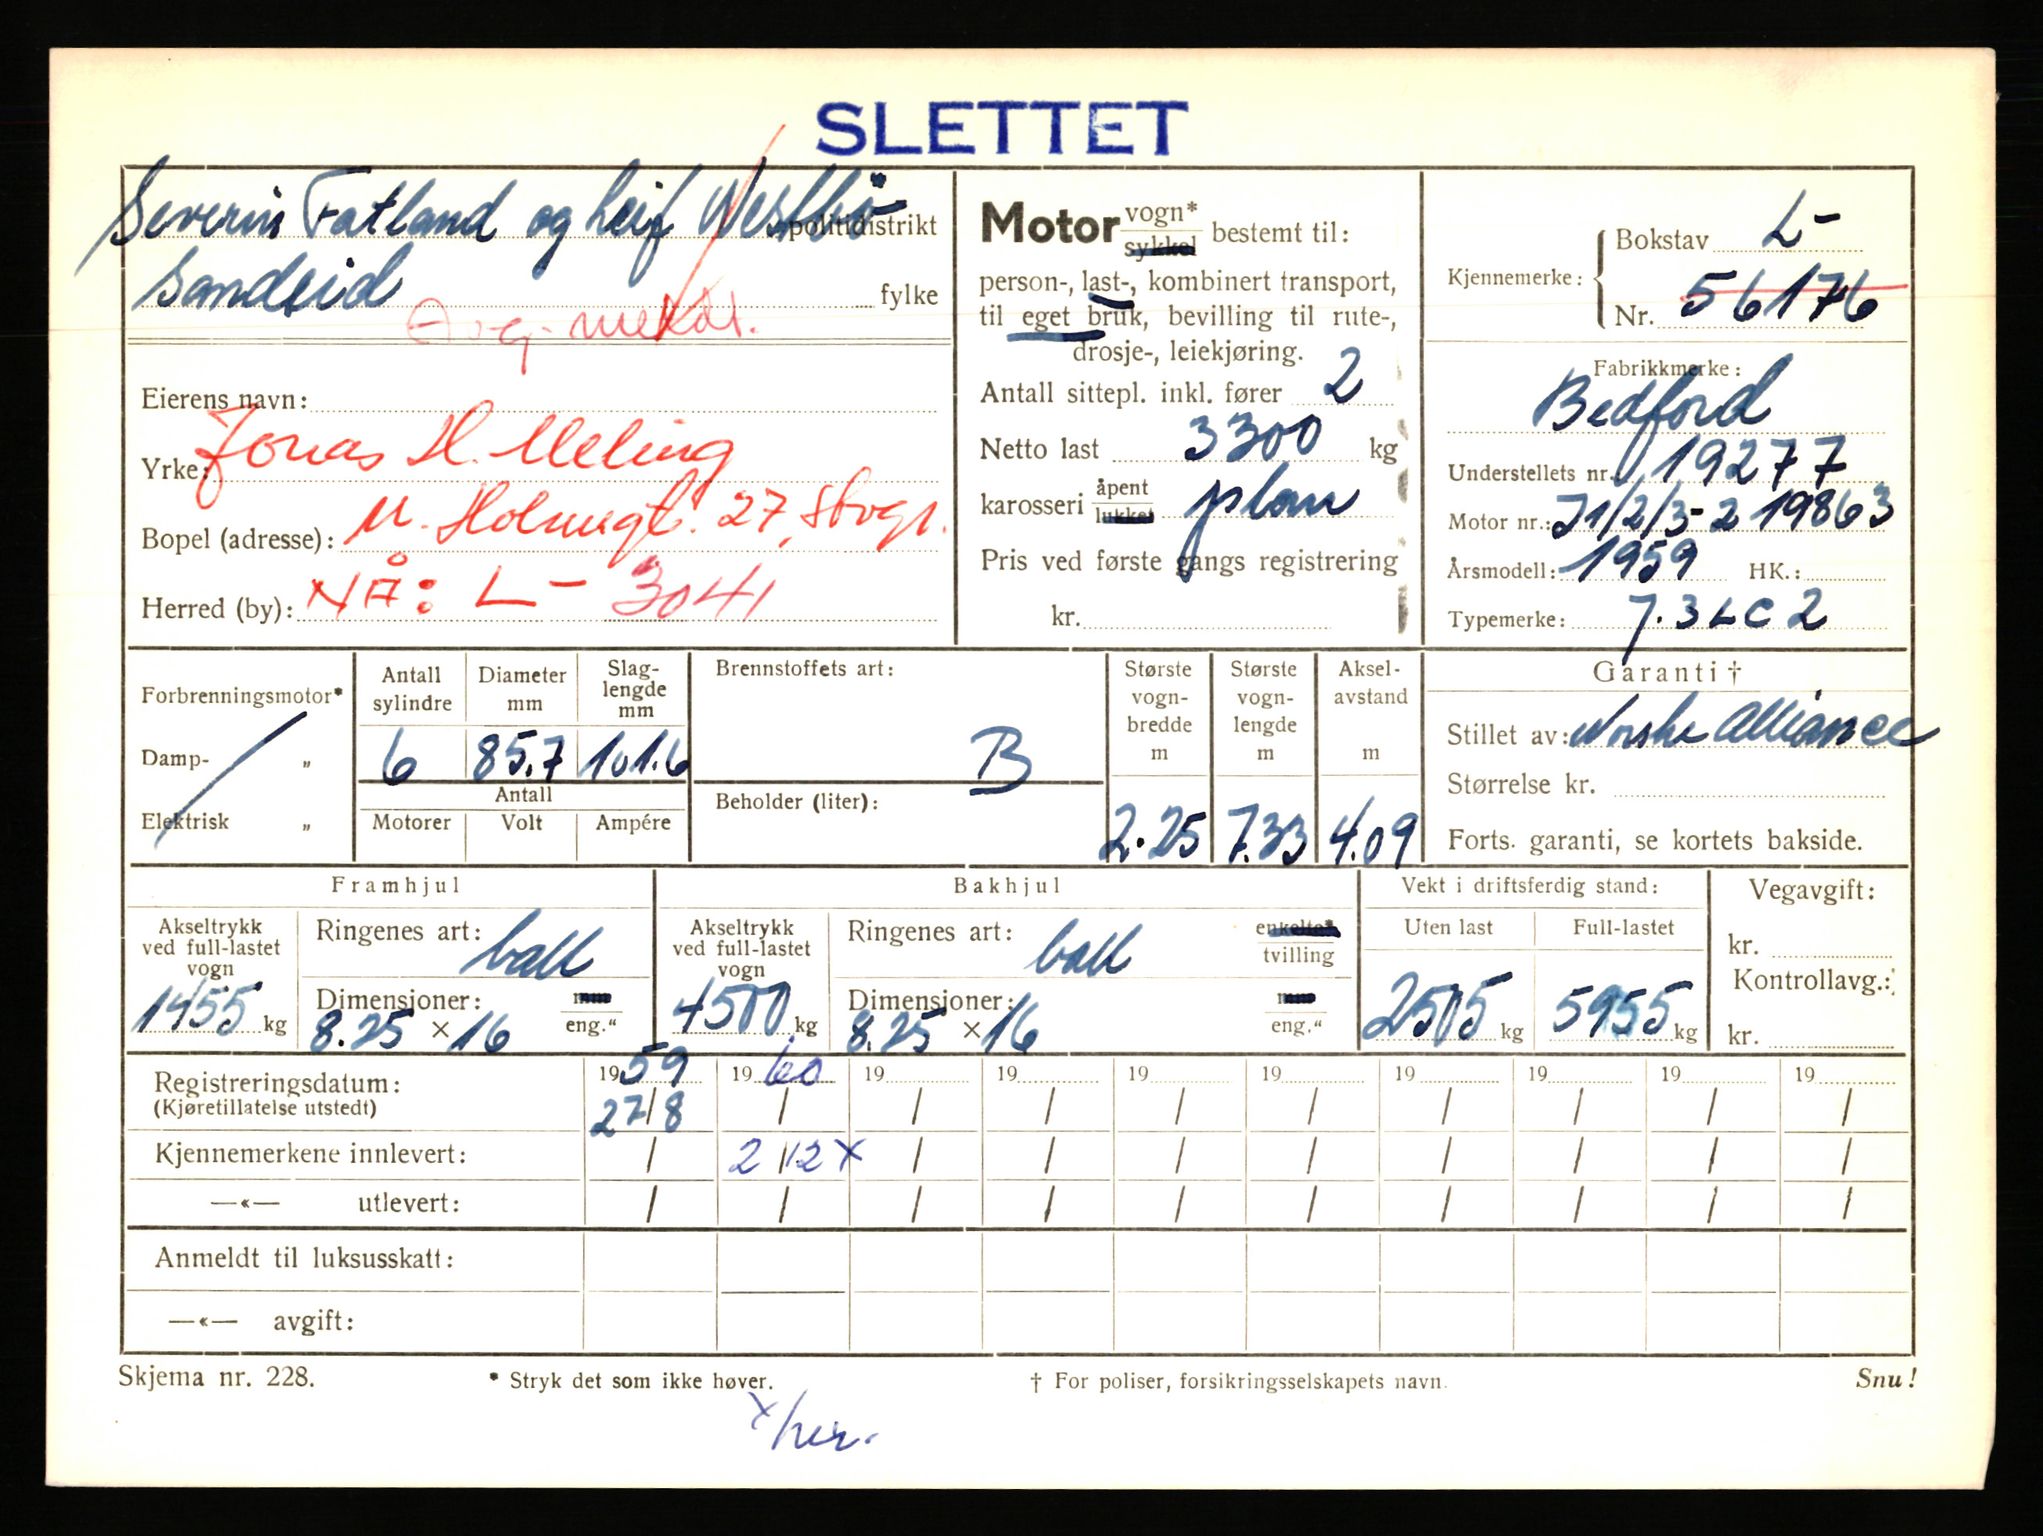 SLETTET
Severin Fatland og Leif Westbö politidistrikt
Sandeid fylke
Avg. meldt.
Eierens navn:
Jonas H. Meling
Yrke:
Bopel (adresse): M. Holmegt. 27, Stvgr.
Herred (by): NÅ: L- 3041
Motor vogn*
sykkel bestemt til:
person-, last-, kombinert transport,
til eget bruk, bevilling til rute-,
drosje-, leiekjøring.
Antall sittepl. inkl. fører 2
Netto last 3300 kg
karosseri åpent
lukket plan
Pris ved første gangs registrering
kr.
Kjennemerke: Bokstav L-
Nr. 56176
Fabrikkmerke:
Bedford
Understellets nr. 19277
Motor nr.: J1/2/3-2 19863
Årsmodell: 1959 HK.:
Typemerke: J.3LC2
Forbrenningsmotor*
Damp- „
Elektrisk „
Antall sylindre
6
Diameter mm
85.7
Slag-
lengde
mm
101.6
Antall
Motorer Volt Ampére
Brennstoffets art:
B
Beholder (liter):
Største vogn-
bredde
m
2.25
Største vogn-
lengde
m
7.33
Aksel-
avstand
m
4.09
Garanti †
Stillet av: Norske Alliance
Størrelse kr.
Forts. garanti, se kortets bakside.
Framhjul
Akseltrykk
ved full-lastet
vogn
1455 kg
Ringenes art: ball
Dimensjoner: mm
8.25 × 16 eng."
Bakhjul
Akseltrykk
ved full-lastet
vogn
4500 kg
Ringenes art: ball enkelte*
tvilling
Dimensjoner: mm
8.25 × 16 eng."
Vekt i driftsferdig stand:
Uten last Full-lastet
2505 kg 5955 kg
Vegavgift:
kr.
Kontrollavg.:
kr.
Registreringsdatum: 1959 1960 19 19 19 19 19 19 19 19
(Kjøretillatelse utstedt) 27/8 / / / / / / / / /
Kjennemerkene innlevert: / 2/12 x / / / / / / / /
—«— utlevert: / / / / / / / / / /
Anmeldt til luksusskatt:
—«— avgift:
Skjema nr. 228. * Stryk det som ikke høver. † For poliser, forsikringsselskapets navn. Snu!
x her.